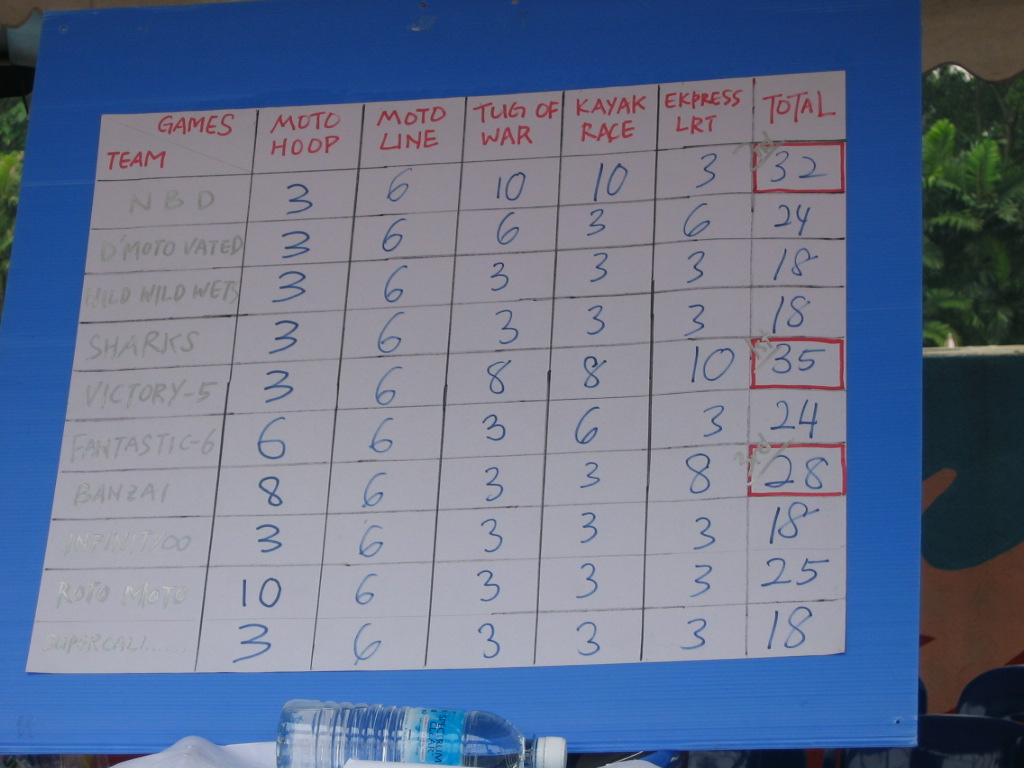 GAMES MOTO HOOP MOTO LINE TUG OF WAR KAYAK RACE EXPRESS LRT TOTAL
TEAM
NBD 3 6 10 10 3 2nd 32
D'MOTO VATED 3 6 6 3 6 24
WILD WILD WETS 3 6 3 3 3 18
SHARKS 3 6 3 3 3 18
VICTORY-5 3 6 8 8 10 1st 35
FANTASTIC-6 6 6 3 6 3 24
BANZAI 8 6 3 3 8 3rd 28
INFINITIOO 3 6 3 3 3 18
ROTO MOTO 10 6 3 3 3 25
SUPERCALI...... 3 6 3 3 3 18
SPECTRUM CLEAR